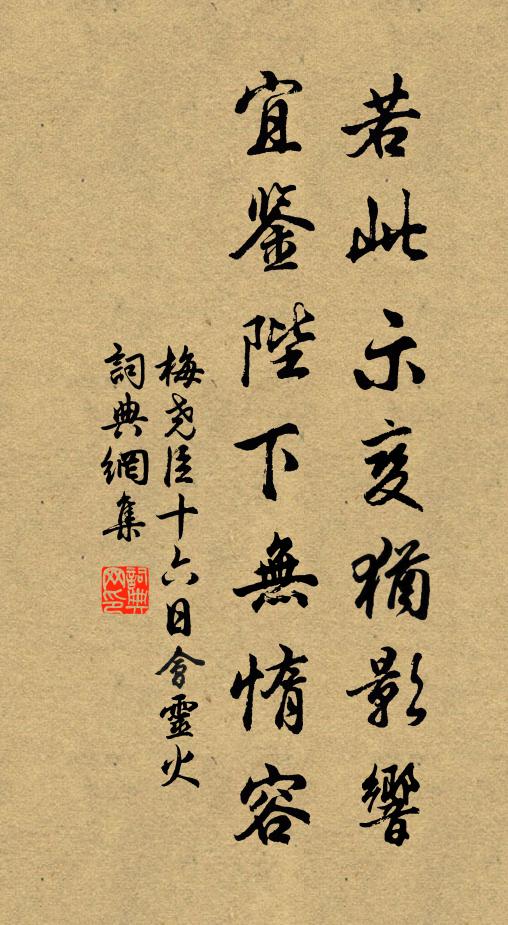 若此示变猶影響
宜鉴陛下無惰容
梅尧臣十六日會靈火
詞典網集
詞典网印